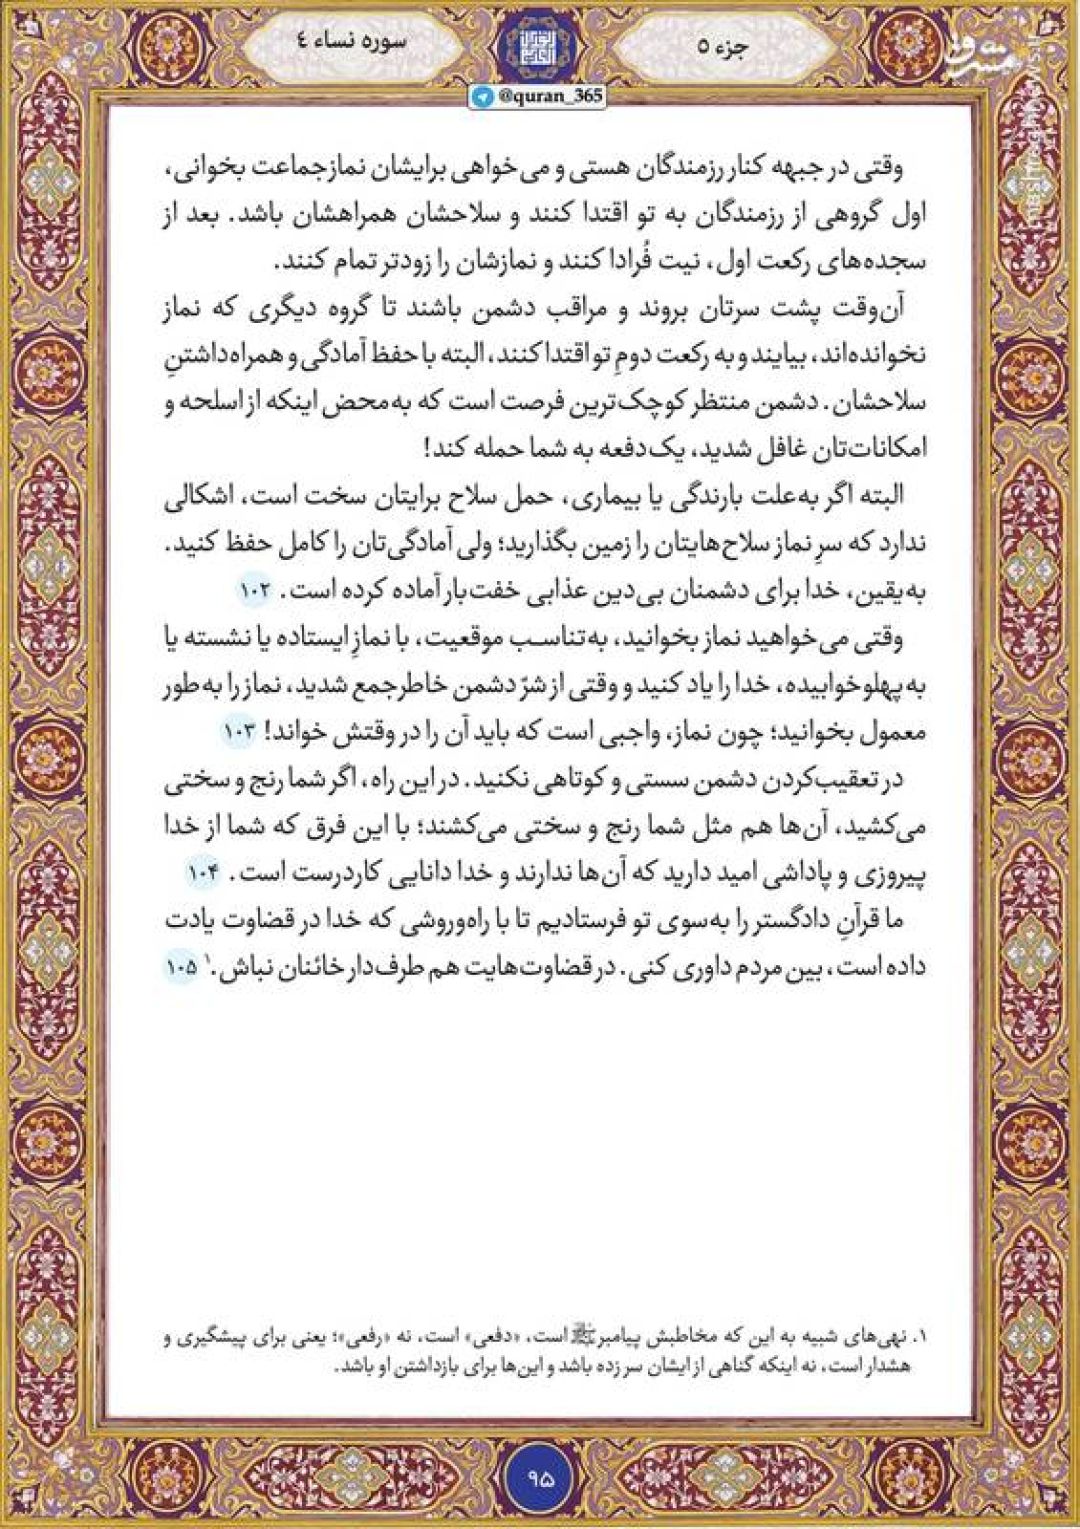 جزء ۵
سوره نساء ٤
مشرق
mashreghnews.ir
@quran_365
وقتی در جبهه کنار رزمندگان هستی و می‌خواهی برایشان نمازجماعت بخوانی،
اول گروهی از رزمندگان به تو اقتدا کنند و سلاحشان همراهشان باشد. بعد از
سجده‌های رکعت اول، نیت فُرادا کنند و نمازشان را زودتر تمام کنند.
آن‌وقت پشت سرتان بروند و مراقب دشمن باشند تا گروه دیگری که نماز
نخوانده‌اند، بیایند و به رکعت دومِ تو اقتدا کنند، البته با حفظ آمادگی و همراه‌داشتنِ
سلاحشان. دشمن منتظر کوچک‌ترین فرصت است که به‌محض اینکه از اسلحه و
امکانات‌تان غافل شدید، یک‌دفعه به شما حمله کند!
البته اگر به‌علت بارندگی یا بیماری، حمل سلاح برایتان سخت است، اشکالی
ندارد که سرِ نماز سلاح‌هایتان را زمین بگذارید؛ ولی آمادگی‌تان را کامل حفظ کنید.
به‌یقین، خدا برای دشمنان بی‌دین عذابی خفت‌بار آماده کرده است. ۱۰۲
وقتی می‌خواهید نماز بخوانید، به‌تناسب موقعیت، با نمازِ ایستاده یا نشسته یا
به پهلو خوابیده، خدا را یاد کنید و وقتی از شرّ دشمن خاطرجمع شدید، نماز را به‌طور
معمول بخوانید؛ چون نماز، واجبی است که باید آن را در وقتش خواند! ۱۰۳
در تعقیب‌کردن دشمن سستی و کوتاهی نکنید. در این راه، اگر شما رنج و سختی
می‌کشید، آن‌ها هم مثل شما رنج و سختی می‌کشند؛ با این فرق که شما از خدا
پیروزی و پاداشی امید دارید که آن‌ها ندارند و خدا دانایی کاردرست است. ۱۰۴
ما قرآنِ دادگستر را به‌سوی تو فرستادیم تا با راه‌وروشی که خدا در قضاوت یادت
داده است، بین مردم داوری کنی. در قضاوت‌هایت هم طرف‌دار خائنان نباش.۱ ۱۰۵
۱. نهی‌های شبیه به این که مخاطبش پیامبرﷺ است، «دفعی» است، نه «رفعی»؛ یعنی برای پیشگیری و
هشدار است، نه اینکه گناهی از ایشان سر زده باشد و این‌ها برای بازداشتن او باشد.
۹۵